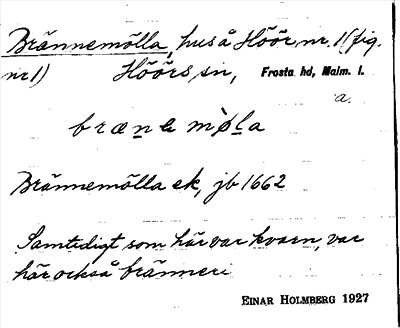 Brännemölla, hus å Höör nr 1 (fig.
nr 1) Höörs sn, Frosta hd, Malm. l.
a.
bræṉe mø̀ḻa
Brännemölla ek, jb 1662
Samtidigt som här var kvarn, var
här också bränneri
EINAR HOLMBERG 1927